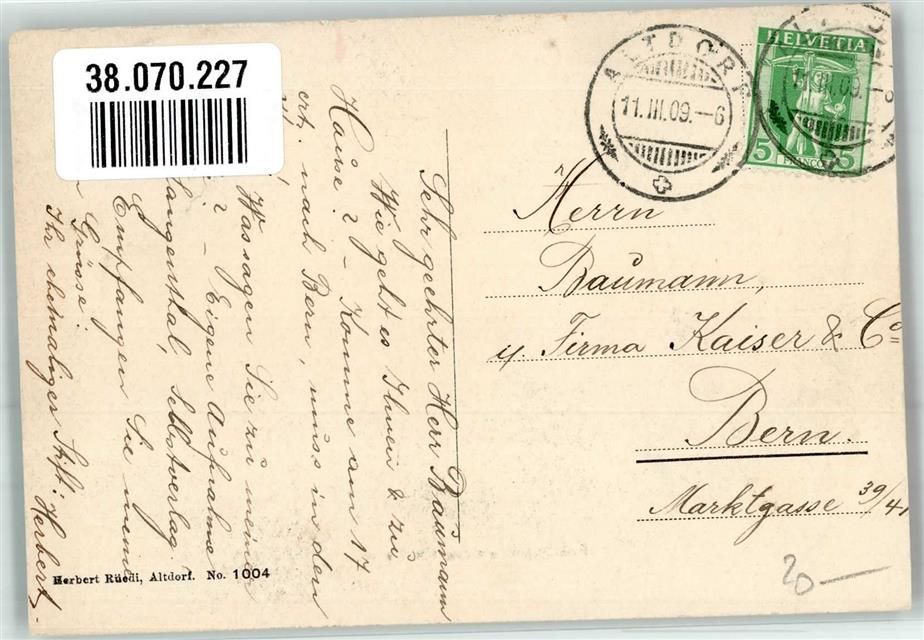 38.070.227
ALTDORF
11.III.09.–6
HELVETIA
5 FRANCO 5
Herrn
Baumann,
Firma Kaiser & Co
Bern.
Marktgasse 39/41
20.—
Sehr geehrter Herr Baumann
Wie geht es Ihnen & zu
Hause? – Komme am 17
ert. nach Bern, muss in den
Was sagen Sie zu meiner
? – Eigene Aufnahme
Langenthal, Selbstverlag
Empfangen Sie meine
Grüsse:
Ihr ehemaliger Stift: Herbert
Herbert Rüedi, Altdorf. No. 1004